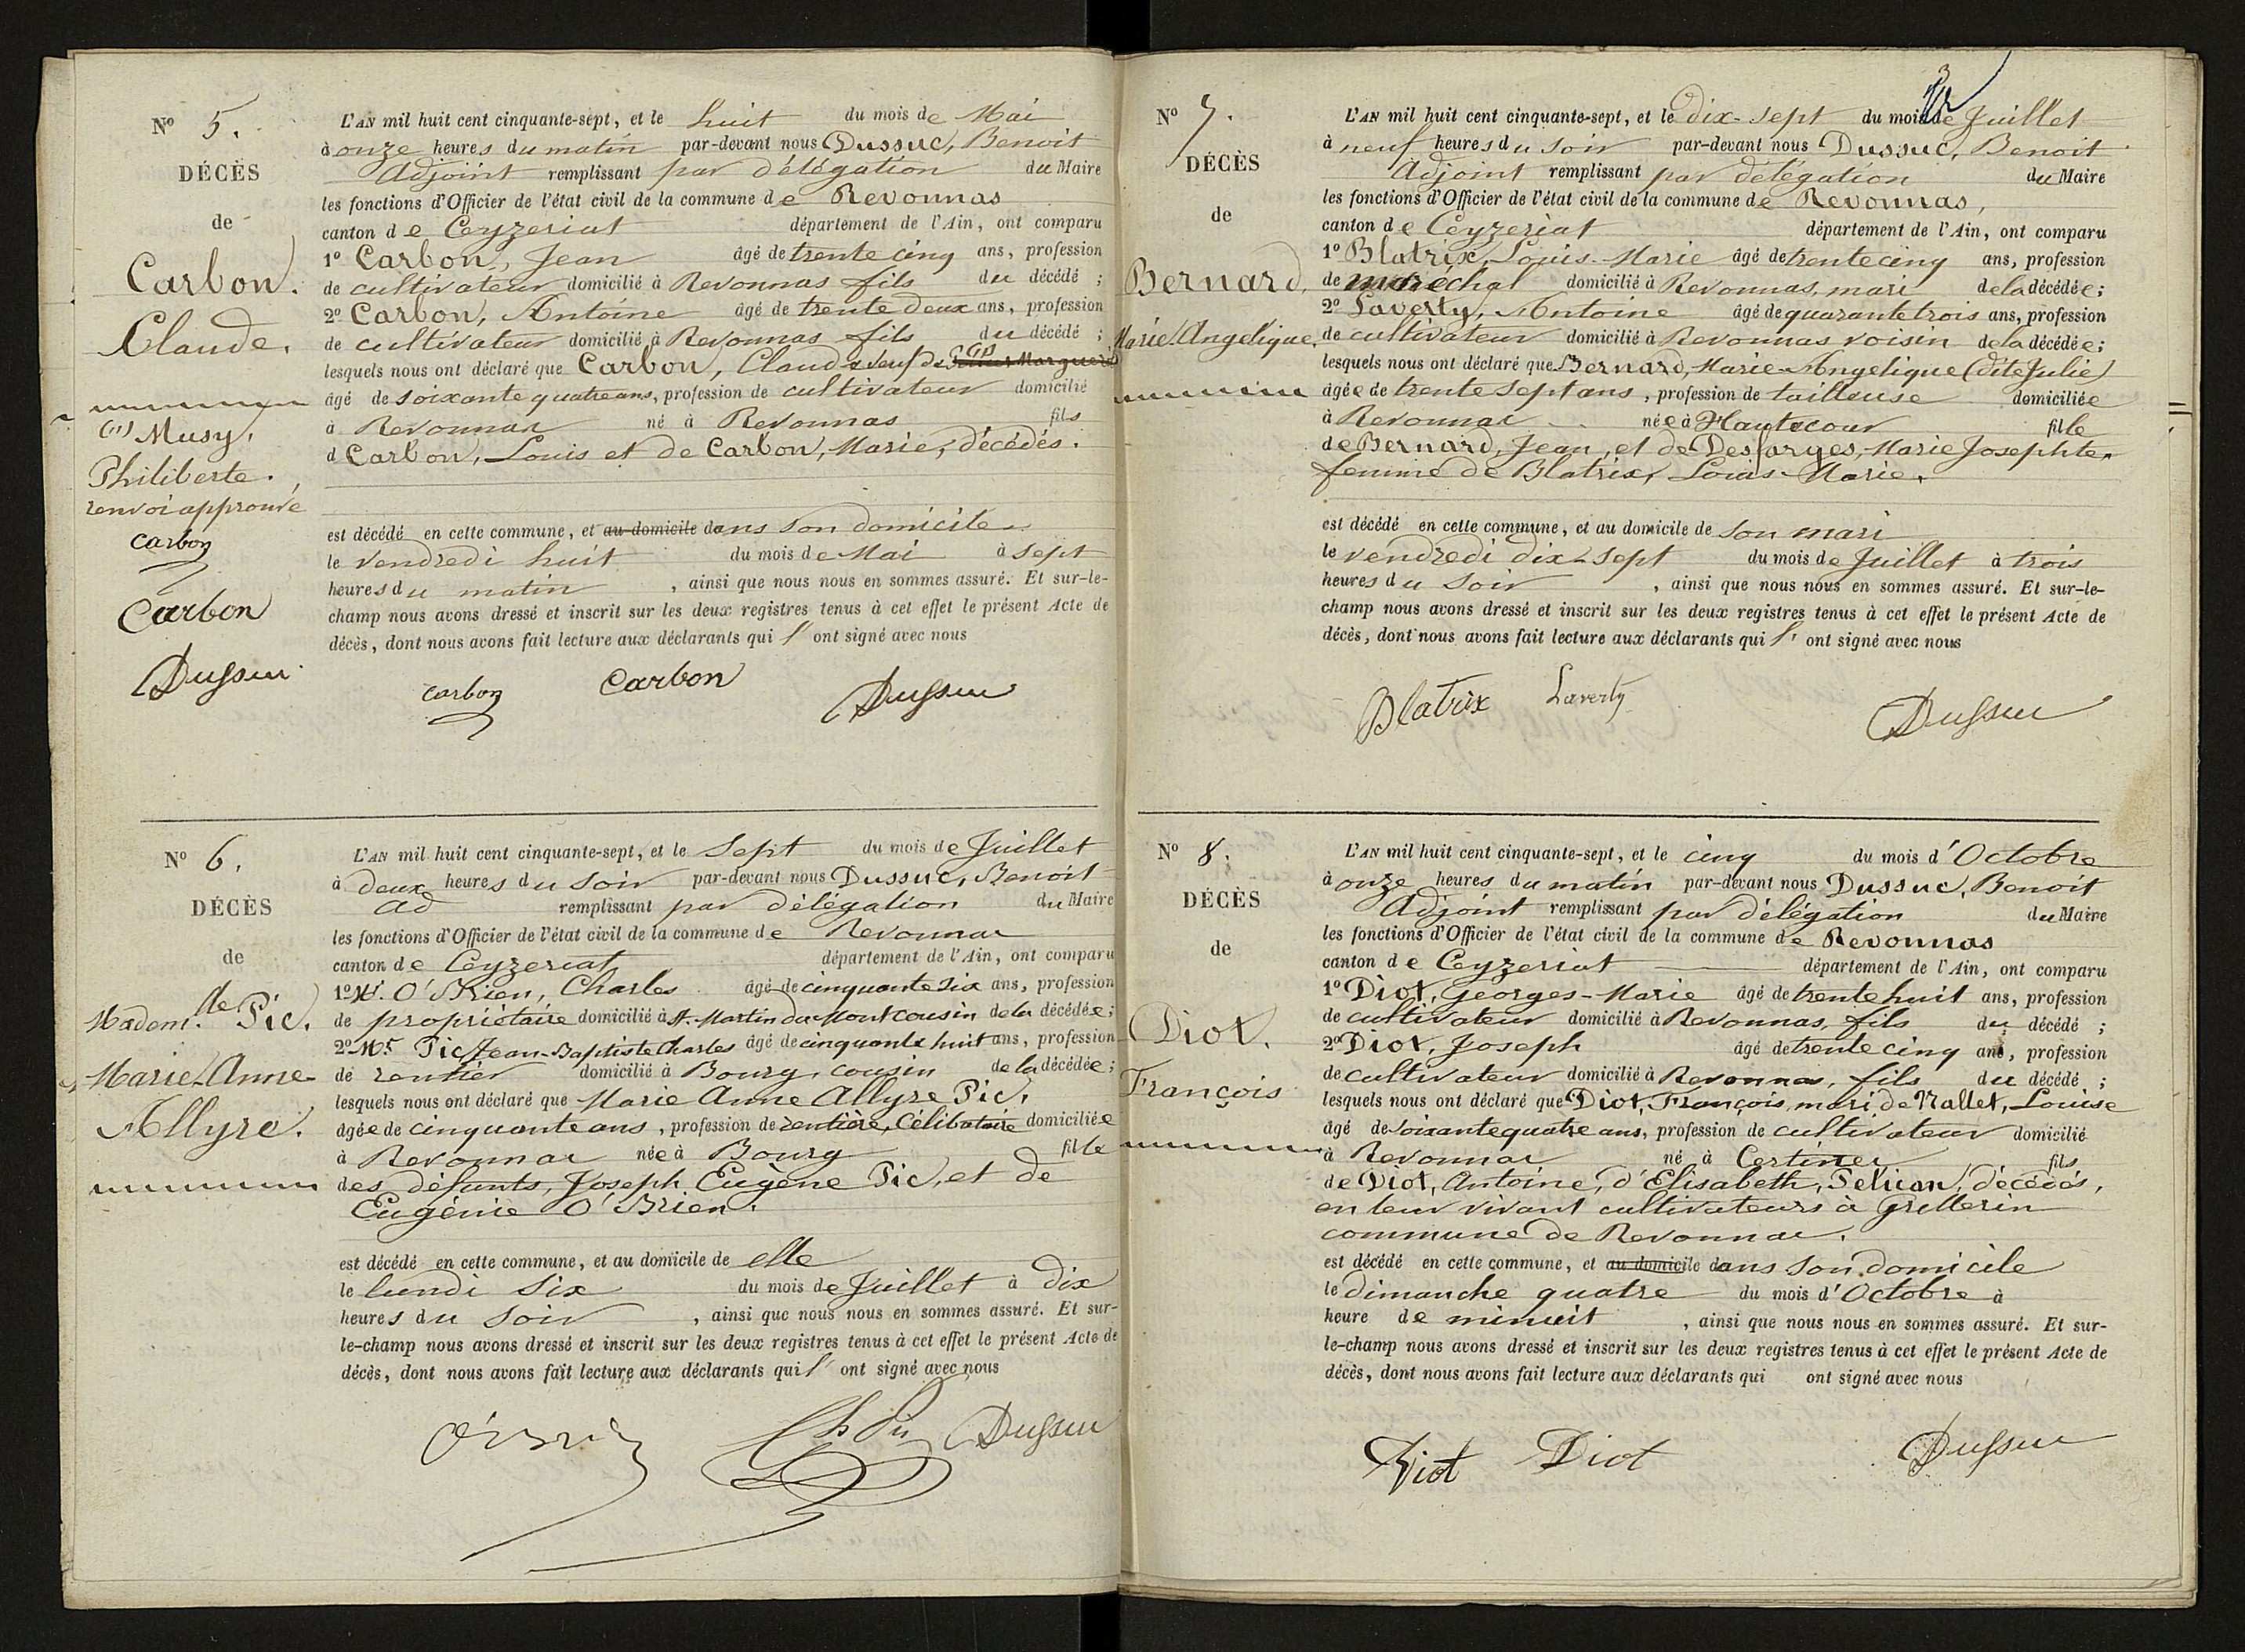 N° 5.
DÉCÈS
de
Carbon.
Claude.
(1) Musy,
Philiberte.
renvoi approuvé
Carbon
Carbon
Dussuc
L'AN mil huit cent cinquante-sept, et le huit du mois de Mai
à onze heures du matin par-devant nous Dussuc, Benoit
Adjoint remplissant par délégation du Maire
les fonctions d'Officier de l'état civil de la commune de Revonnas
canton de Ceyzeriat département de l'Ain, ont comparu
1° Carbon, Jean âgé de trente cinq ans, profession
de cultivateur domicilié à Revonnas fils du décédé ;
2° Carbon, Antoine âgé de trente deux ans, profession
de cultivateur domicilié à Revonnas fils du décédé ;
lesquels nous ont déclaré que Carbon, Claude veuf de (1)
âgé de soixante quatre ans, profession de cultivateur domicilié
à Revonnas né à Revonnas fils
d Carbon, Louis et de Carbon, Marie, décédés.
est décédé en cette commune, et au domicile dans son domicile
le vendredi huit du mois de Mai à sept
heures du matin , ainsi que nous nous en sommes assuré. Et sur-le-
champ nous avons dressé et inscrit sur les deux registres tenus à cet effet le présent Acte de
décès, dont nous avons fait lecture aux déclarants qui l' ont signé avec nous
Carbon Carbon Dussuc
N° 6.
DÉCÈS
de
Madem.lle Pic.
Marie-Anne
Allyre.
L'AN mil huit cent cinquante-sept, et le Sept du mois de Juillet
à deux heures du soir par-devant nous Dussuc, Benoit
ad remplissant par délégation du Maire
les fonctions d'Officier de l'état civil de la commune de Revonnas
canton de Ceyzeriat département de l'Ain, ont comparu
1° Mr. O'Brien, Charles âgé de cinquante six ans, profession
de propriétaire domicilié à St. Martin du Mont cousin de la décédée ;
2° Mr. Pic, Jean-Baptiste Charles âgé de cinquante huit ans, profession
de rentier domicilié à Bourg, cousin de la décédée ;
lesquels nous ont déclaré que Marie Anne Allyre Pic,
âgée de cinquante ans, profession de rentière, Célibataire domiciliée
à Revonnas née à Bourg fille
des défunts, Joseph Eugène Pic, et de
Eugénie O'Brien.
est décédé en cette commune, et au domicile de elle
le lundi six du mois de Juillet à dix
heures du soir , ainsi que nous nous en sommes assuré. Et sur-
le-champ nous avons dressé et inscrit sur les deux registres tenus à cet effet le présent Acte de
décès, dont nous avons fait lecture aux déclarants qui l' ont signé avec nous
O'Brien Ch Pic Dussuc
3
N° 7.
DÉCÈS
de
Bernard,
Marie Angelique,
L'AN mil huit cent cinquante-sept, et le dix-sept du mois de Juillet
à neuf heures du soir par-devant nous Dussuc, Benoit
Adjoint remplissant par délégation du Maire
les fonctions d'Officier de l'état civil de la commune de Revonnas,
canton de Ceyzeriat département de l'Ain, ont comparu
1° Blatrix, Louis-Marie âgé de trente cinq ans, profession
de maréchal domicilié à Revonnas, mari de la décédée ;
2° Laverty, Antoine âgé de quarante trois ans, profession
de cultivateur domicilié à Revonnas voisin de la décédée ;
lesquels nous ont déclaré que Bernard, Marie-Angelique (dite Julie)
âgée de trente sept ans, profession de tailleuse domiciliée
à Revonnas née à Hautecour fille
de Bernard, Jean, et de Desfarges, Marie Josephte,
femme de Blatrix, Louis-Marie.
est décédé en cette commune, et au domicile de son mari
le vendredi dix-sept du mois de Juillet à trois
heures du soir , ainsi que nous nous en sommes assuré. Et sur-le-
champ nous avons dressé et inscrit sur les deux registres tenus à cet effet le présent Acte de
décès, dont nous avons fait lecture aux déclarants qui l' ont signé avec nous
Blatrix Laverty Dussuc
N° 8.
DÉCÈS
de
Diot.
François
L'AN mil huit cent cinquante-sept, et le cinq du mois d'Octobre
à onze heures du matin par-devant nous Dussuc, Benoit
Adjoint remplissant par délégation du Maire
les fonctions d'Officier de l'état civil de la commune de Revonnas
canton de Ceyzeriat département de l'Ain, ont comparu
1° Diot, Georges-Marie âgé de trente huit ans, profession
de cultivateur domicilié à Revonnas, fils du décédé ;
2° Diot, Joseph âgé de trente cinq ans, profession
de cultivateur domicilié à Revonnas, fils du décédé ;
lesquels nous ont déclaré que Diot, François, mari de Nallet, Louise
âgé de soixante quatre ans, profession de cultivateur domicilié
à Revonnas né à Certines fils
de Diot, Antoine, d'Elisabeth, décédés,
en leur vivant cultivateurs à Grillerin
commune de Revonnas.
est décédé en cette commune, et au domicile dans son domicile
le dimanche quatre du mois d'Octobre à
heure de minuit , ainsi que nous nous en sommes assuré. Et sur-
le-champ nous avons dressé et inscrit sur les deux registres tenus à cet effet le présent Acte de
décès, dont nous avons fait lecture aux déclarants qui ont signé avec nous
Diot Diot Dussuc